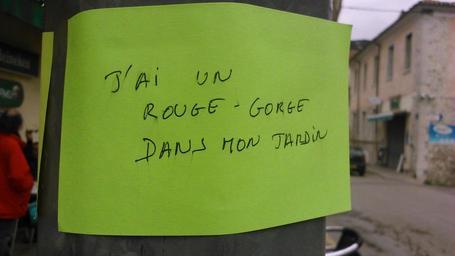 J'AI UN
ROUGE-GORGE
DANS MON JARDIN